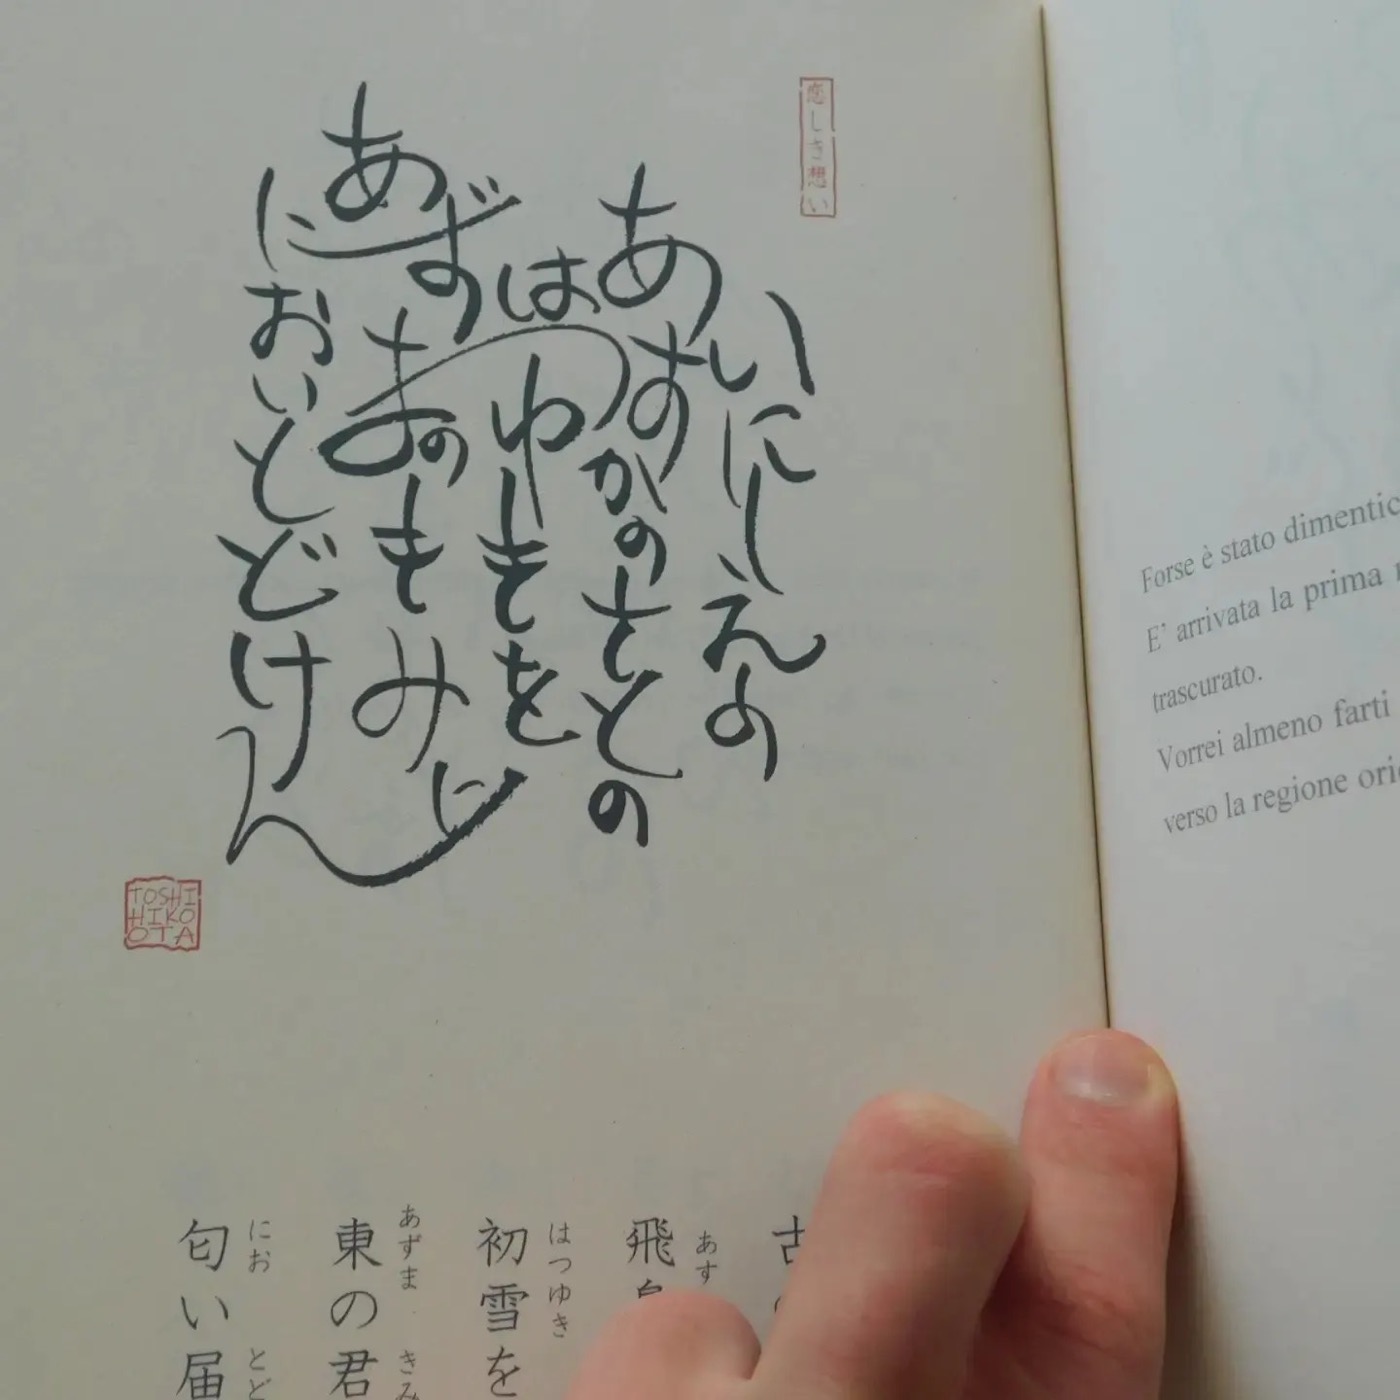 恋しき想い
いにしえの
あすかのさとの
はつゆきを
あずまのきみに
においとどけん
TOSHI
HIKO
OTA
古
あす
飛
はつゆき
初雪を
あずま きみ
東の君
にお とど
匂い届
Forse è stato dimentic
E' arrivata la prima
trascurato.
Vorrei almeno farti
verso la regione ori